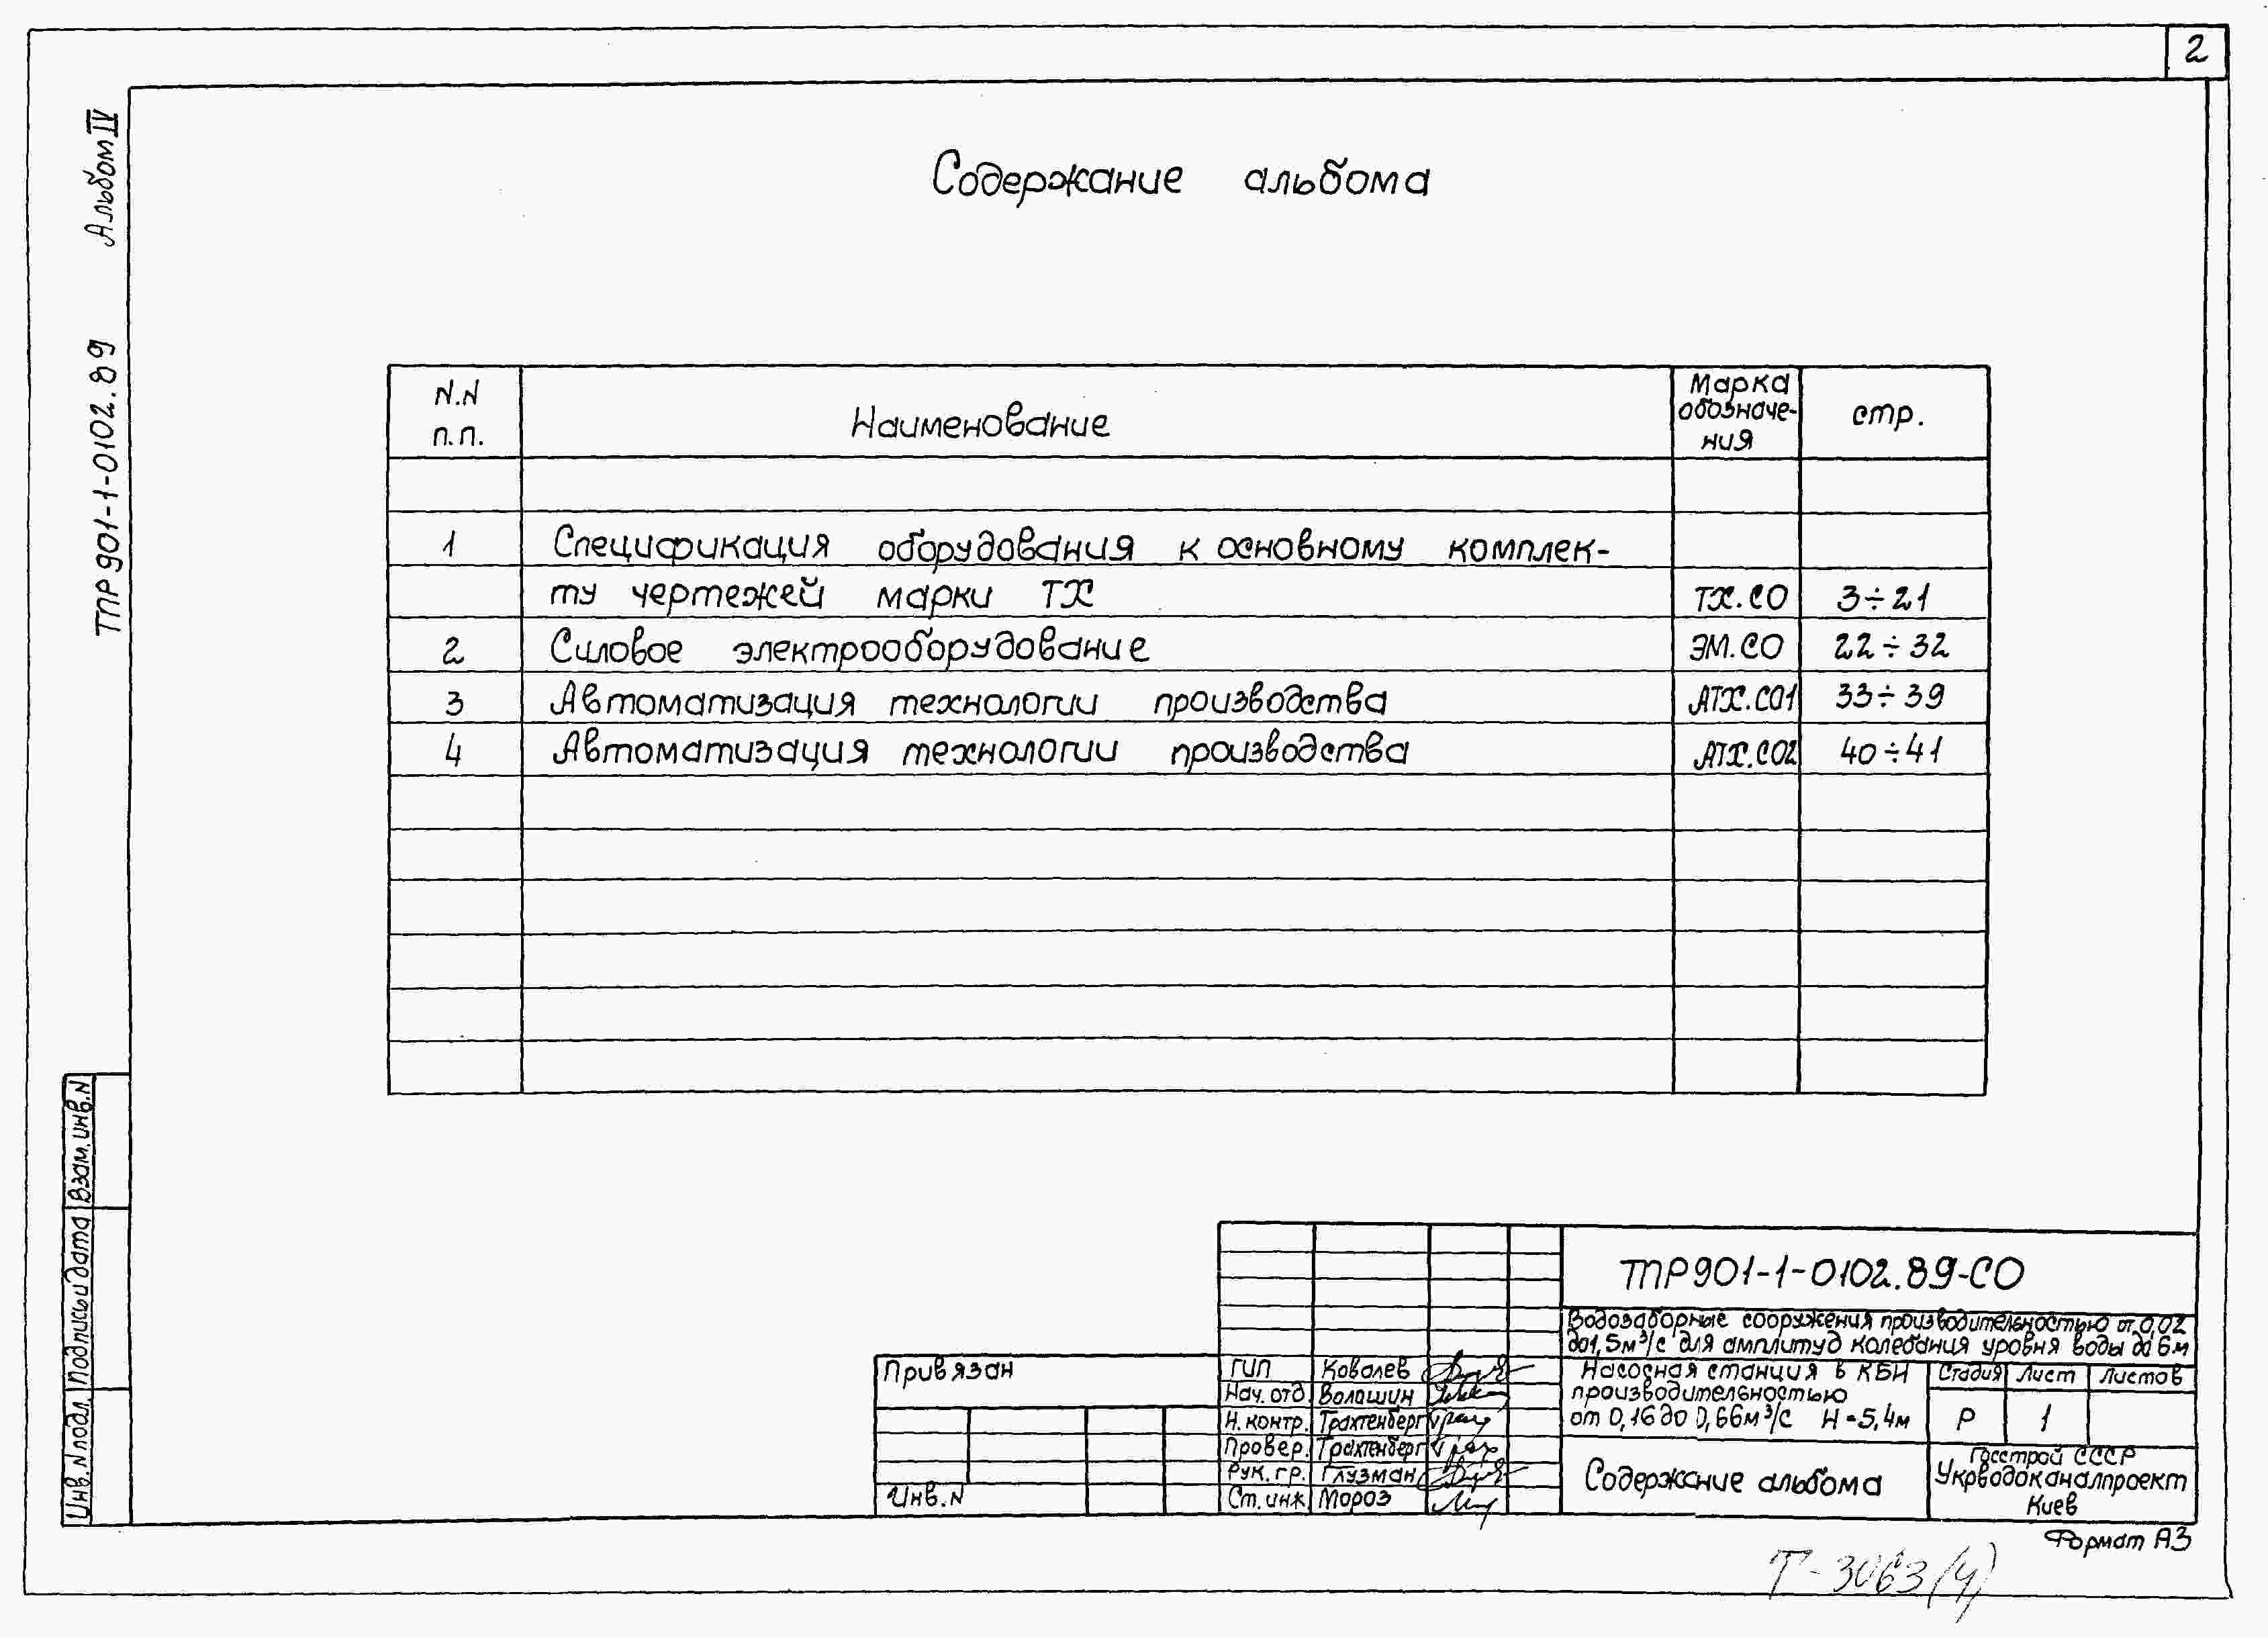 2
Альбом IV
ТПР 901-1-0102.89
Содержание альбома
N.N п.п.
Наименование
Марка обозначе-ния
стр.
1 Спецификация оборудования к основному комплек-
ту чертежей марки ТХ ТХ.СО 3÷21
2 Силовое электрооборудование ЭМ.СО 22÷32
3 Автоматизация технологии производства АТХ.СО1 33÷39
4 Автоматизация технологии производства АТХ.СО2 40÷41
Взам.инв.N
Подпись и дата
Инв.N подл.
ТПР901-1-0102.89-СО
Водозаборные сооружения производительностью от 0,02
до 1,5м³/с для амплитуд колебания уровня воды до 6м
Привязан
Инв.N
ГИП Ковалев
Нач.отд. Волашин
Н.контр. Трахтенберг
Провер. Трахтенберг
Рук.гр. Глузман
Ст.инж Мороз
Насосная станция в КБИ
производительностью
от 0,16 до 0,66м³/с Н=5,4м
Стадия Лист Листов
Р 1
Содержание альбома
Госстрой СССР
Укрводоканалпроект
Киев
Формат А3
Т-3063(4)